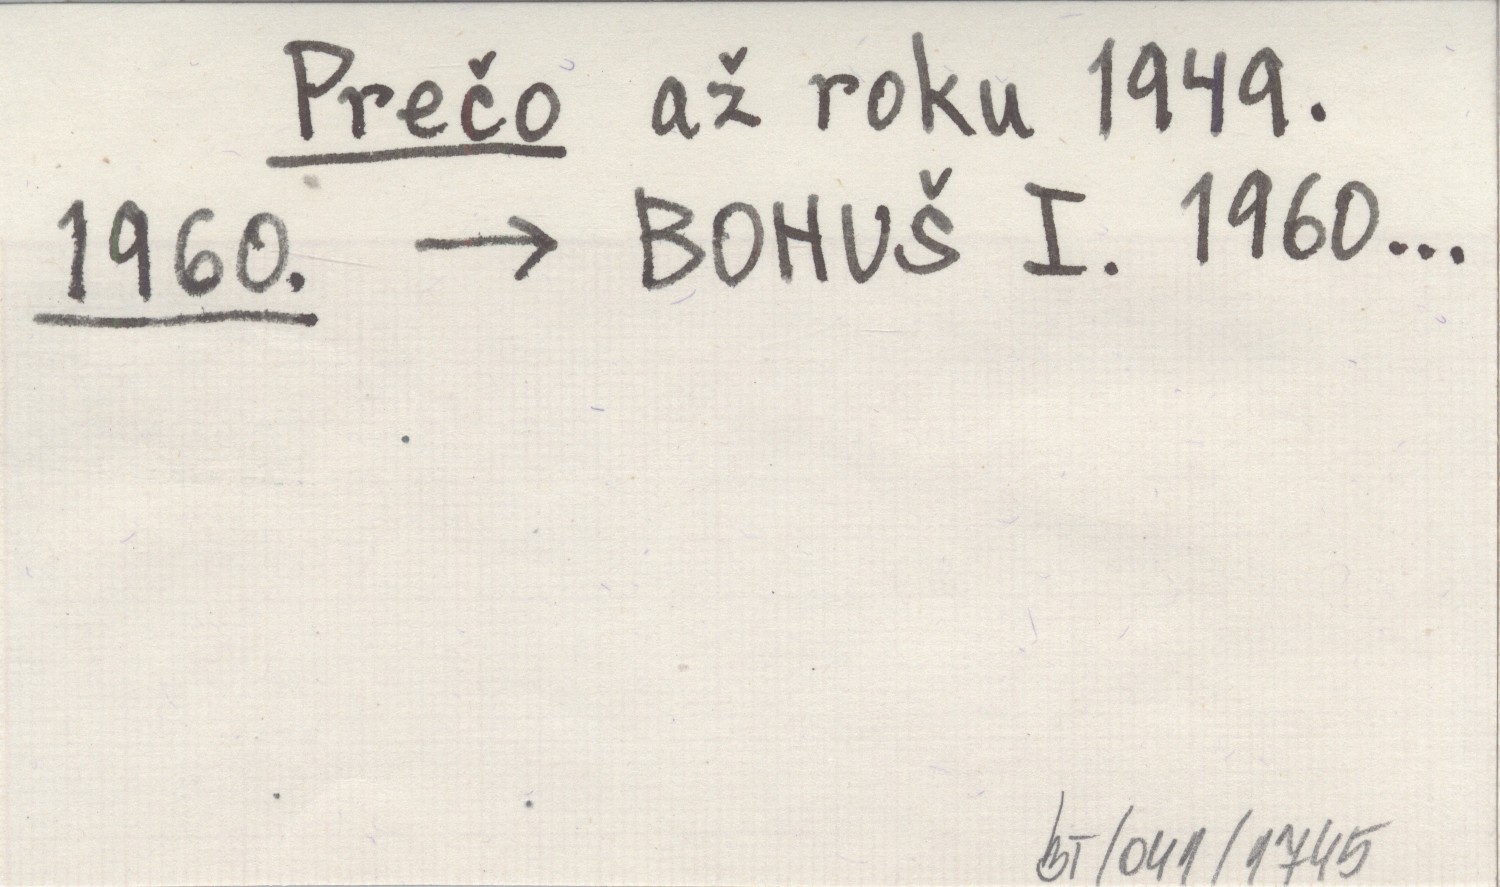 Prečo až roku 1949.
1960. → BOHUŠ I. 1960...
bT/041/1745